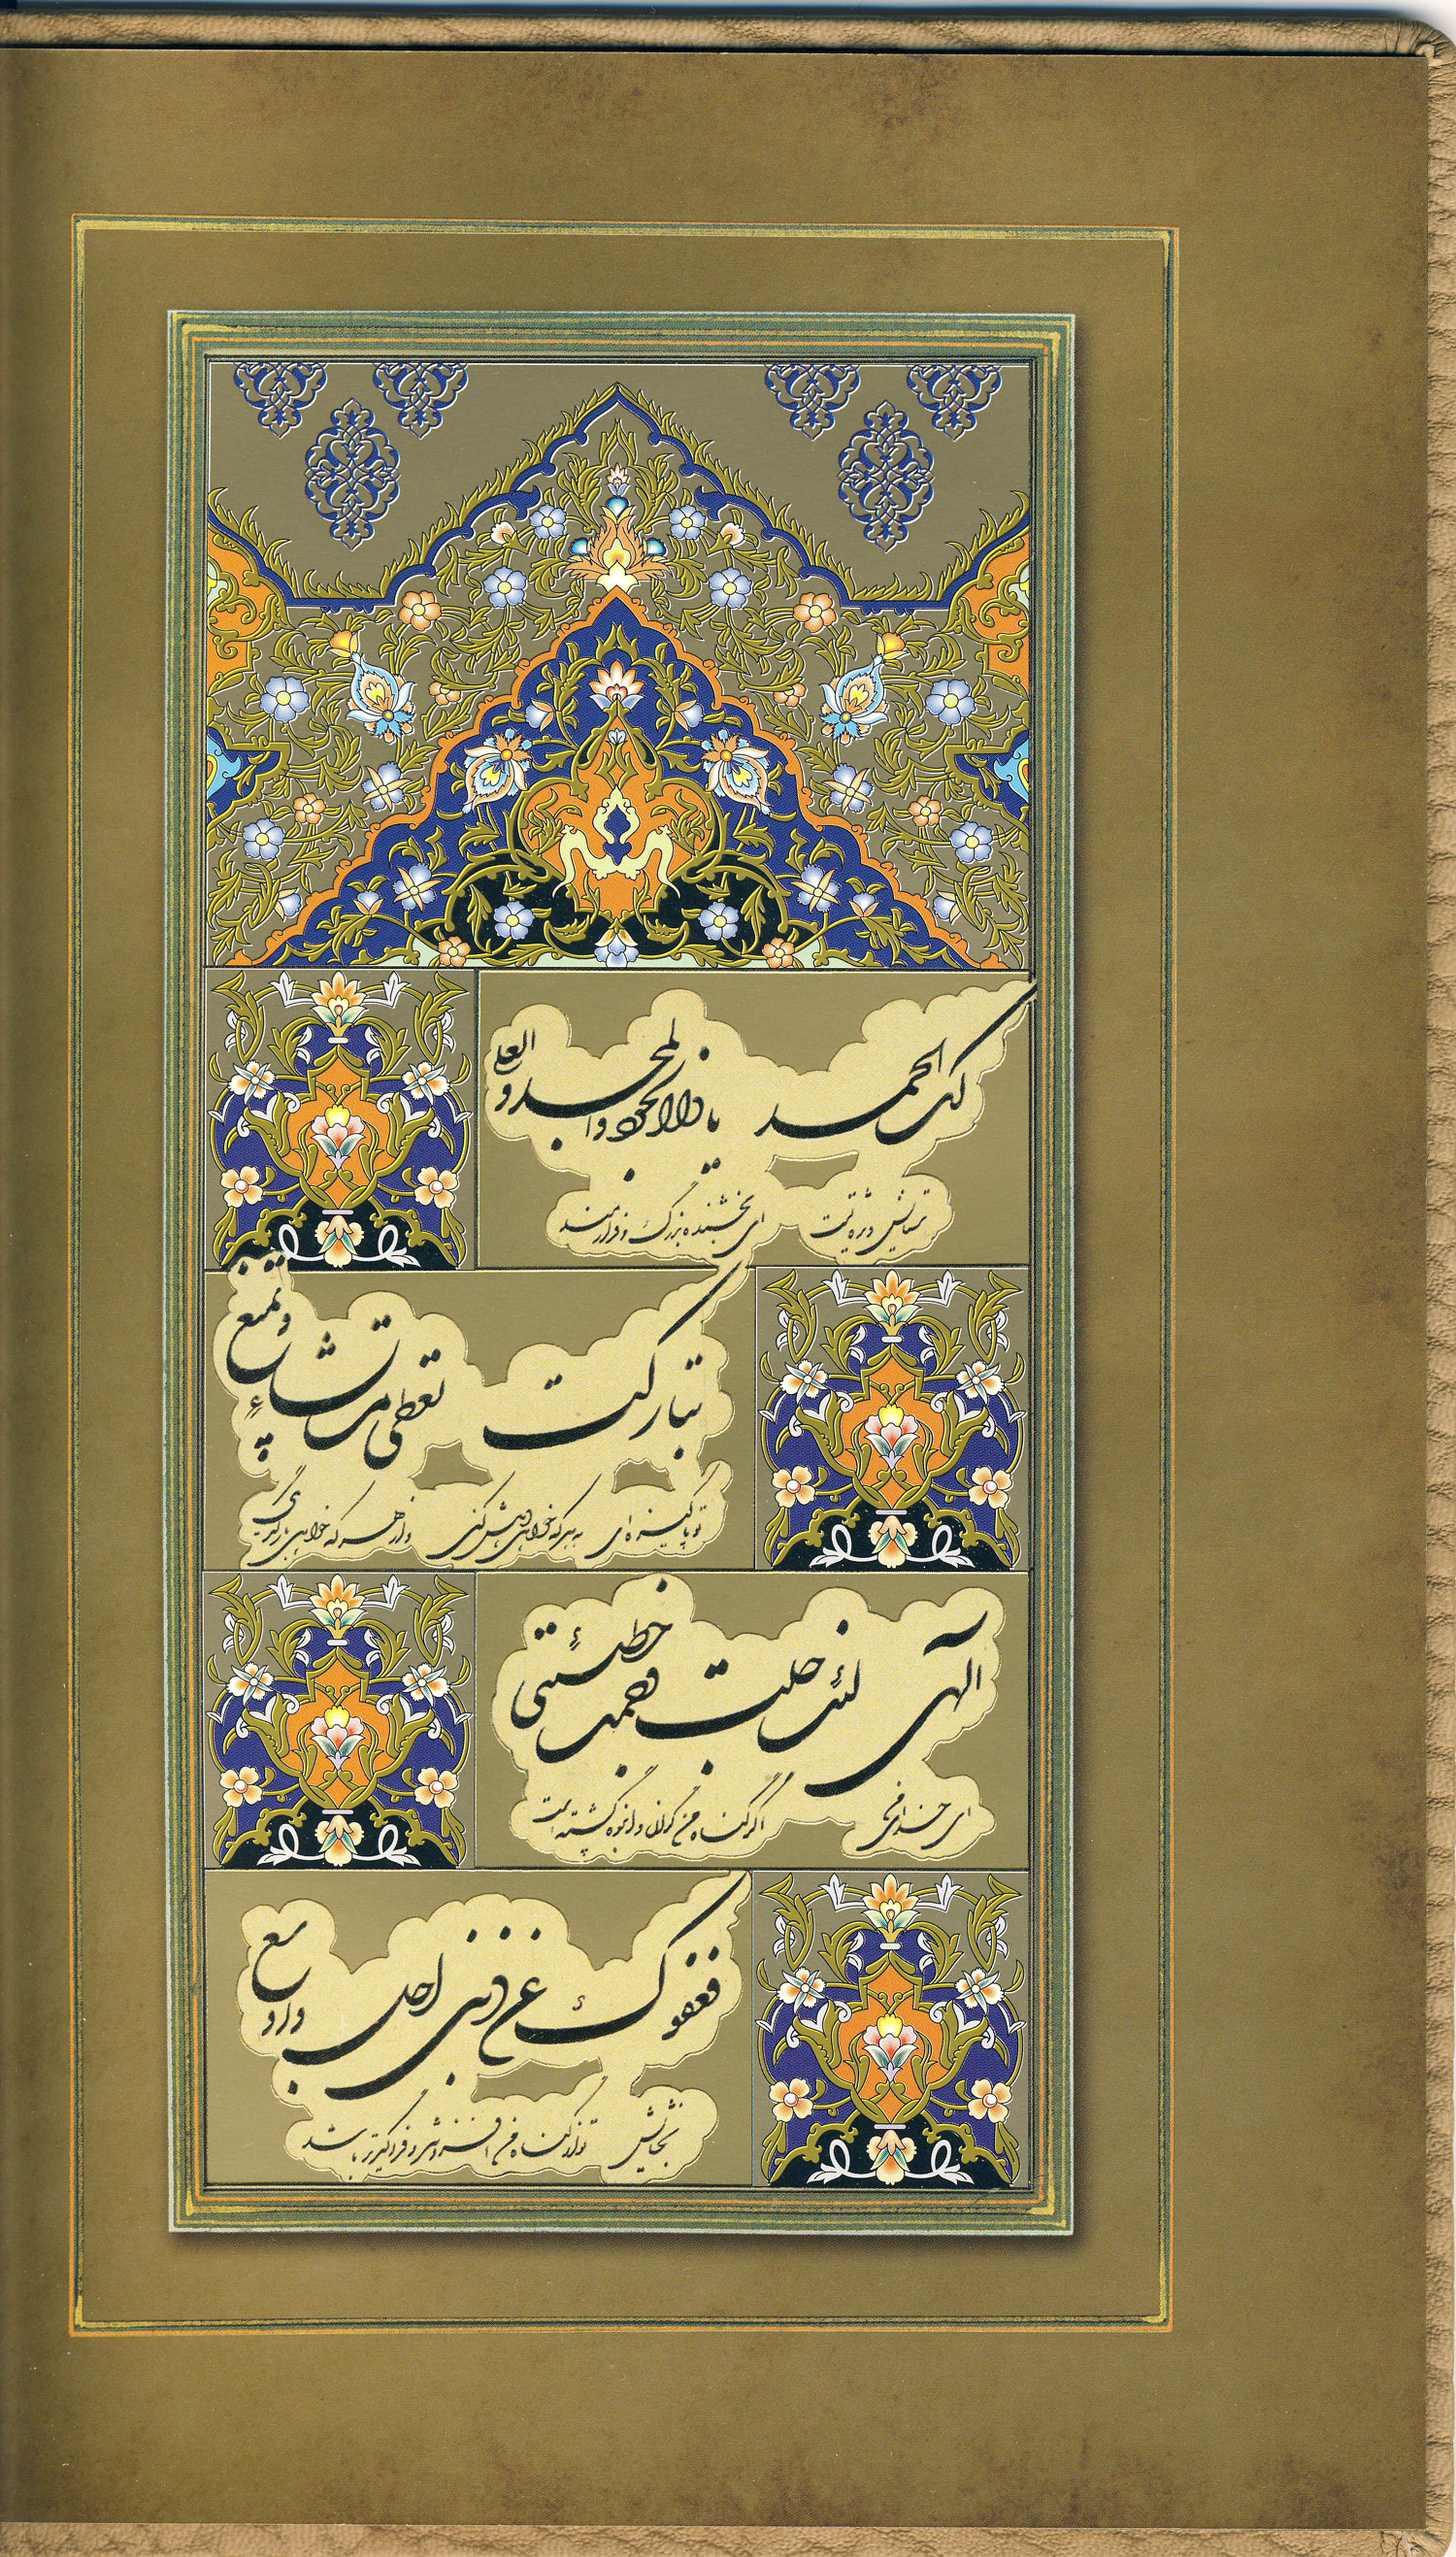 لک الحمد یا ذا الجود و المجد و العلی
ستایش ویژه تست ای بخشنده بزرگ و فرازمند
تبارکت تعطی من تشاء و تمنع
تو پاکیزه ای به هر که خواهی دهش کنی و از هر که خواهی بازگیری
الهی لئن جلت و جمت خطیئتی
ای خدای من اگر گناه من گران و انبوه گشته است
فعفوک عن ذنبی اجل و اوسع
بخشایش تو از گناه من افزونتر و فراگیرتر باشد